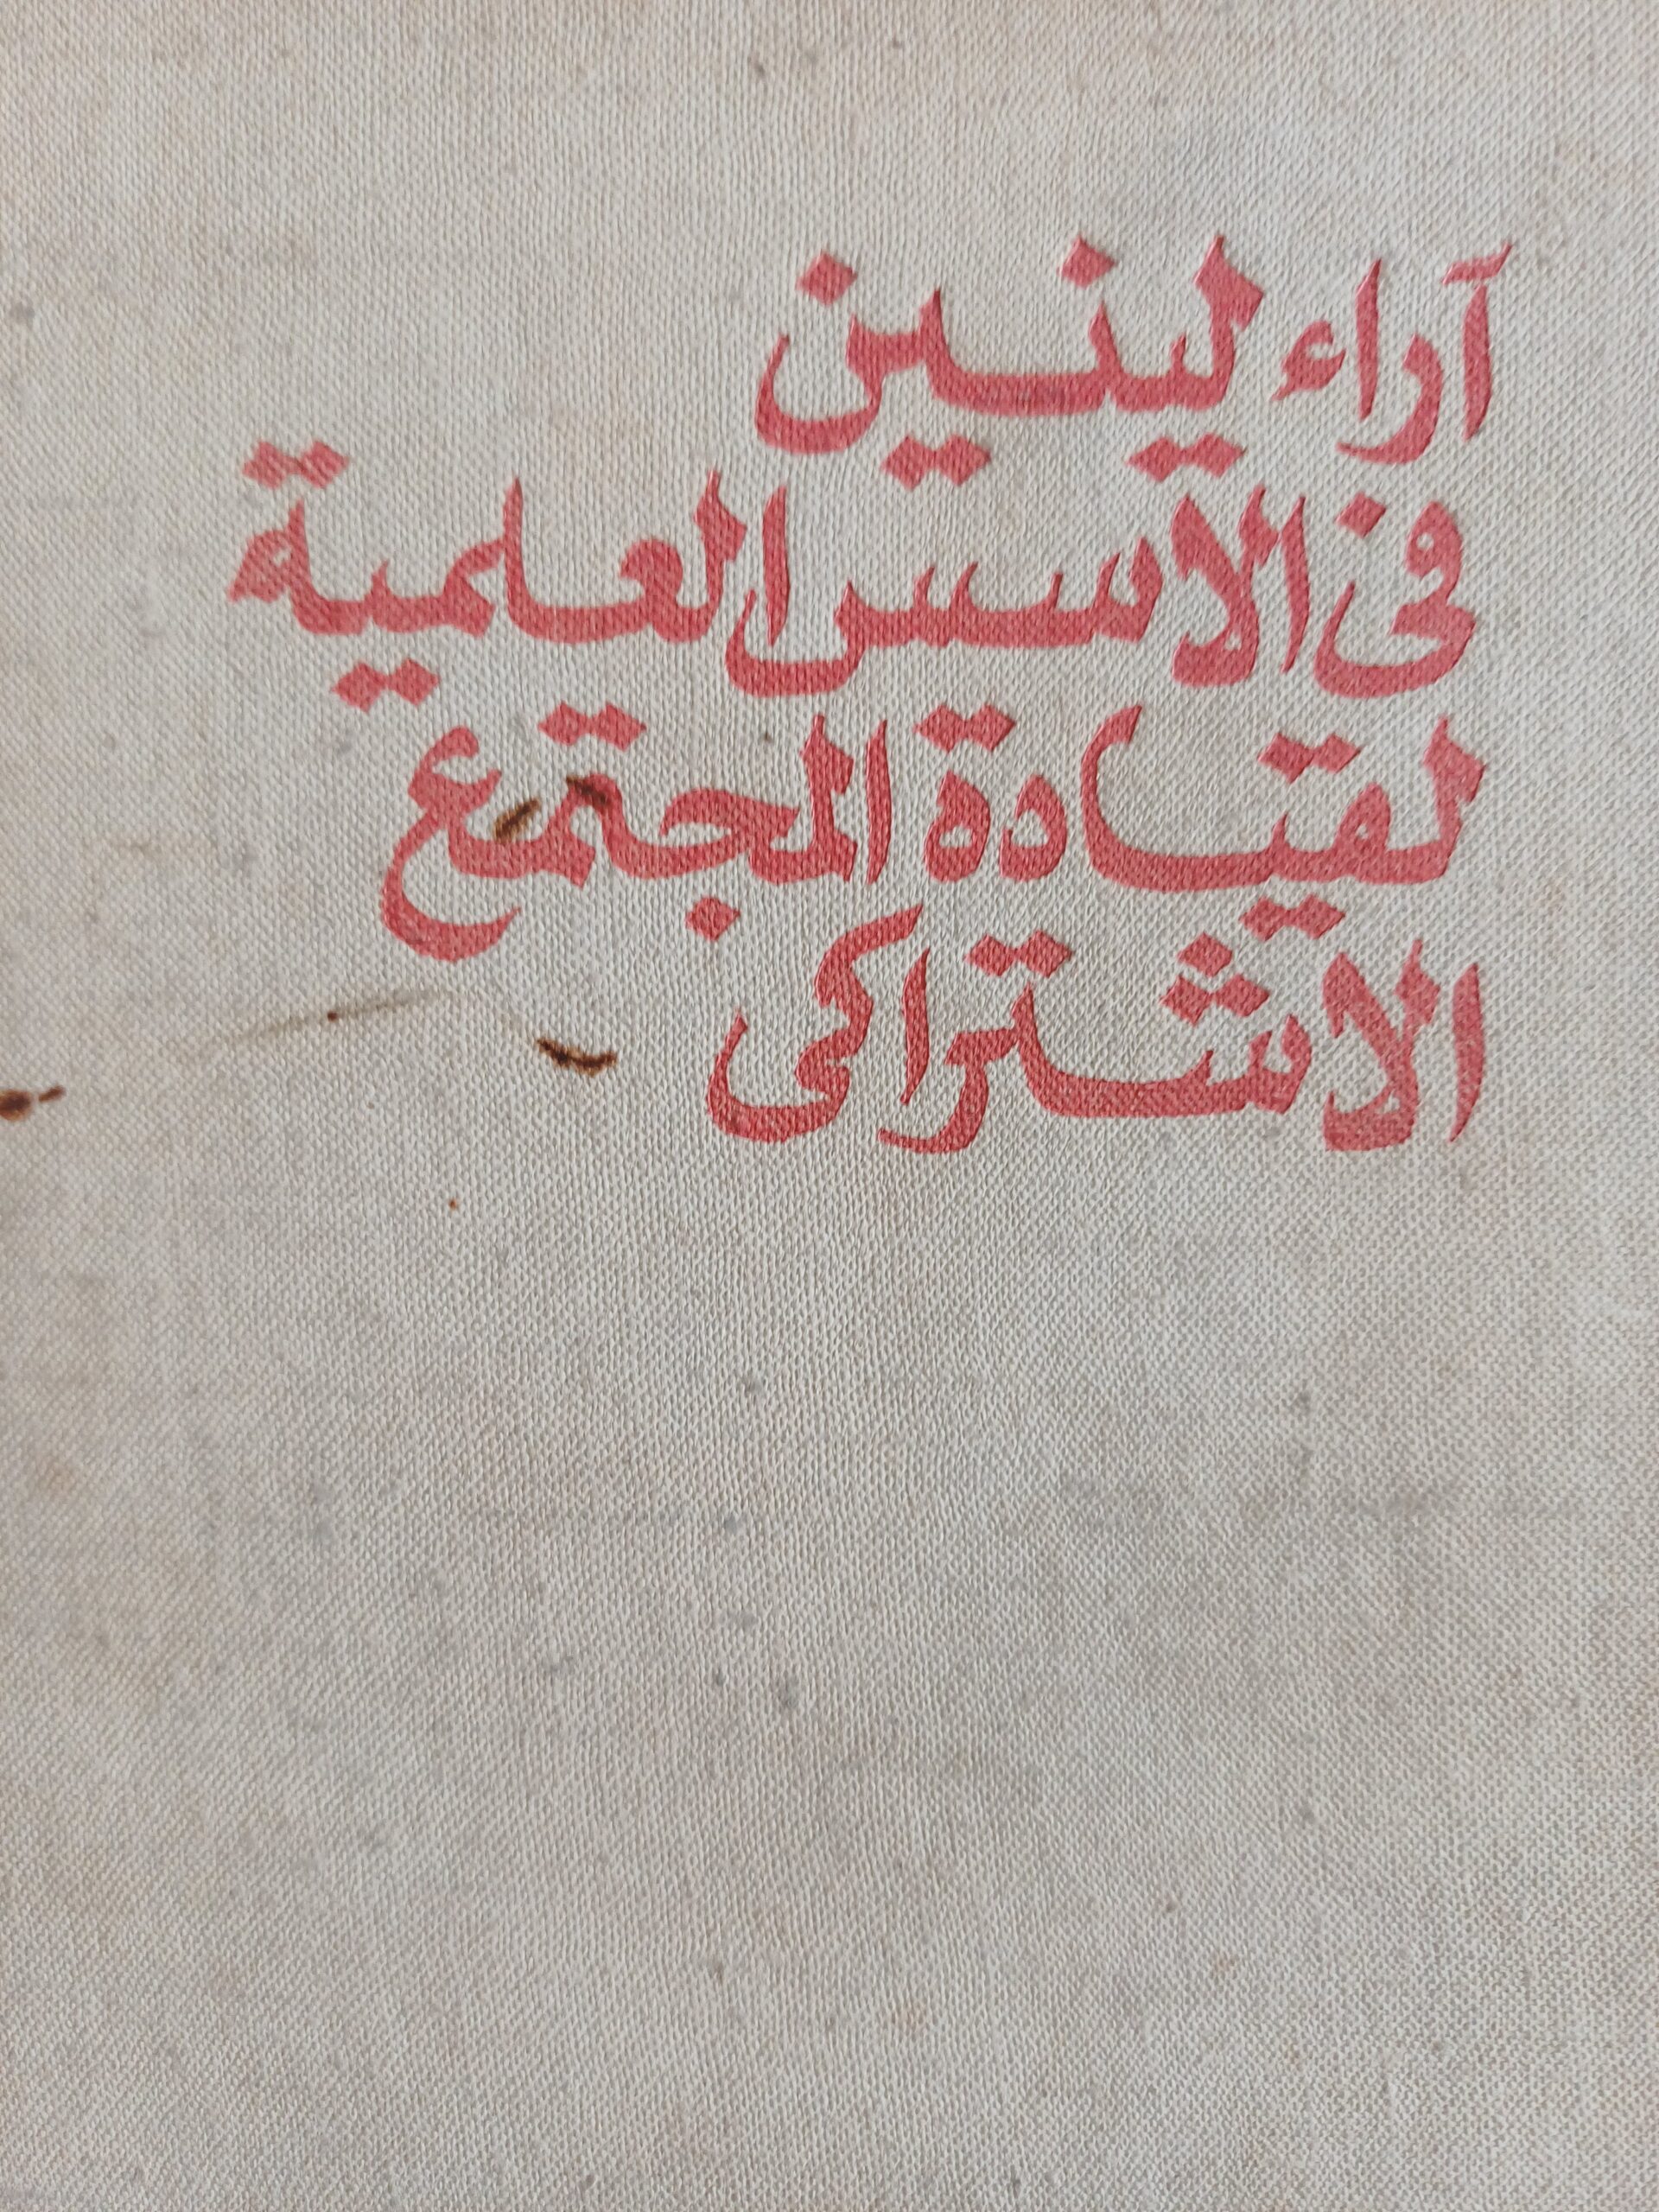 آراء لينين
فى الاسس العلمية
لقيادة المجتمع
الاشتراكى